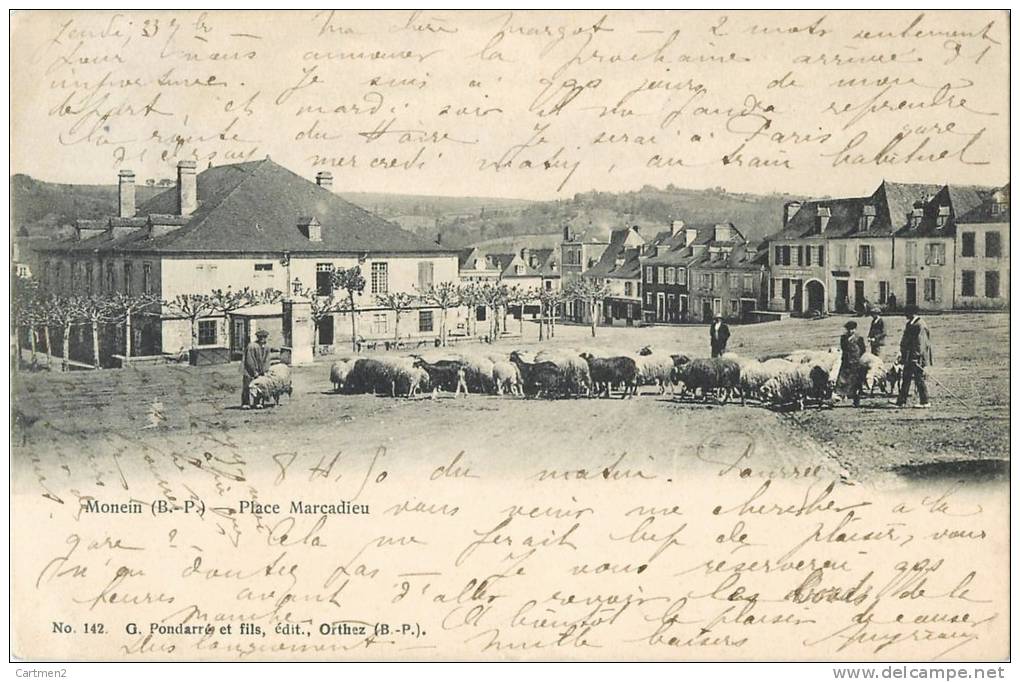 Jeudi, 23 7bre — Ma chère Margot — 2 mots seulement
pour vous annoncer la prochaine arrivée d'1
infortunée. Je suis à qqs jours de mon
départ, et mardi soir il me faudra reprendre
la route du Hâvre Je serai à Paris gare
mercredi matin, au train habituel
8 H. 50 du matin. Pourrez
Monein (B.-P.) — Place Marcadieu
vous venir me chercher à la
gare ? — Cela me ferait bep de plaisir, vous
n'en doutez pas — Je vous réserverai qqs
heures avant d'aller revoir les bords de la
Manche
A bientôt le plaisir de causer
No. 142. G. Pondarré et fils, édit., Orthez (B.-P.).
plus longuement — mille baisers
Cartmen2
www.delcampe.net